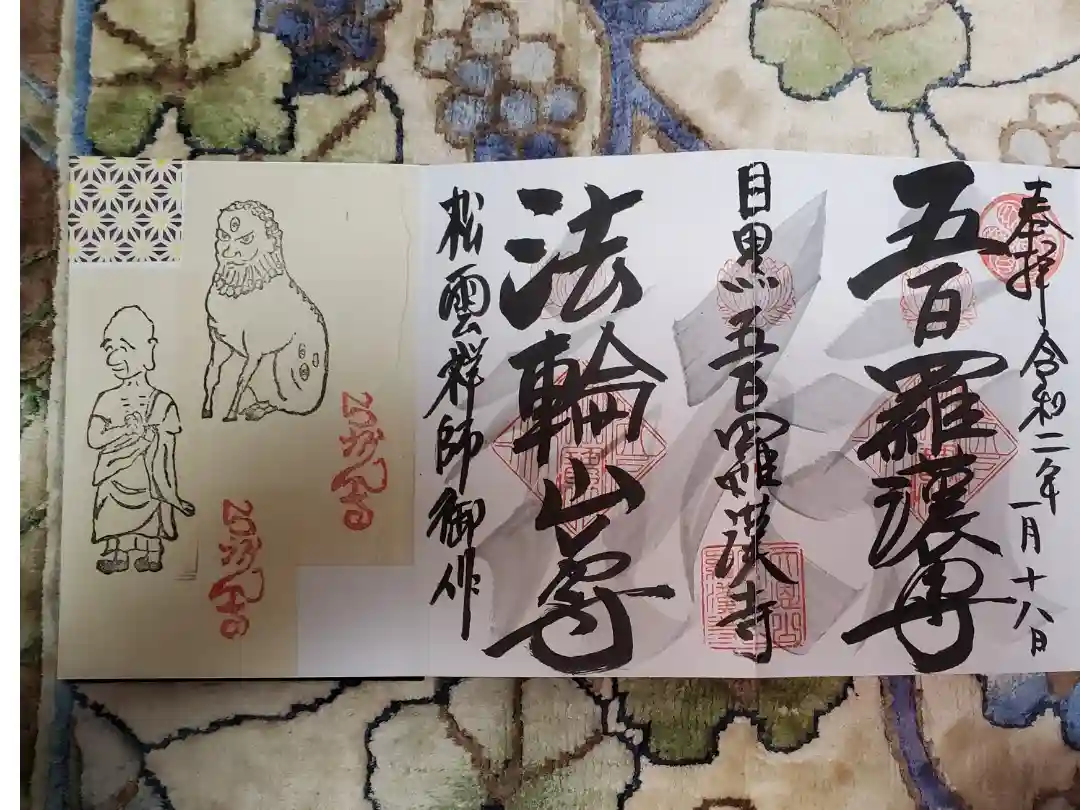 奉拝 令和二年 一月 十八日
五百羅漢尊
目黒 五百羅漢寺
法輪山
松雲祥師御作